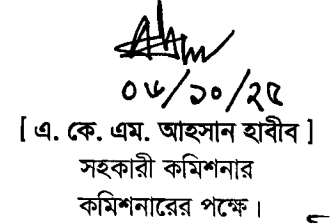 ০৬/১০/২৫
[ এ. কে. এম. আহসান হাবীব ]
সহকারী কমিশনার
কমিশনারের পক্ষে।